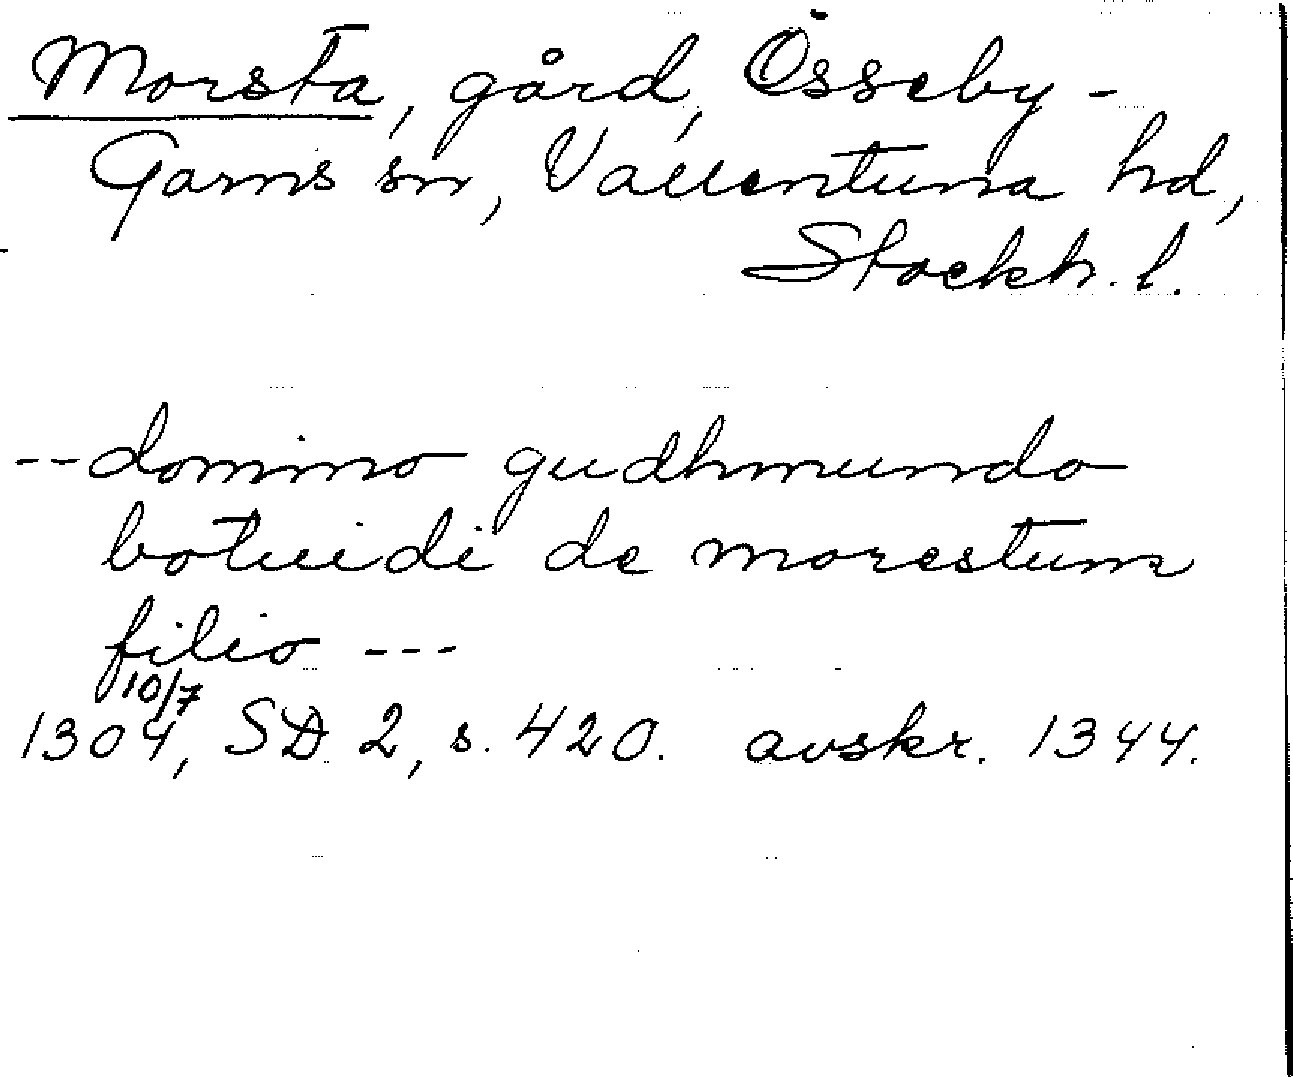 Morsta, gård, Össeby-
Garns sn, Vallentuna hd,
Stockh. l.
-- domino gudhmundo
botuidi de morestum
filio ---
10/7
1304, SD 2, s. 420. avskr. 1344.